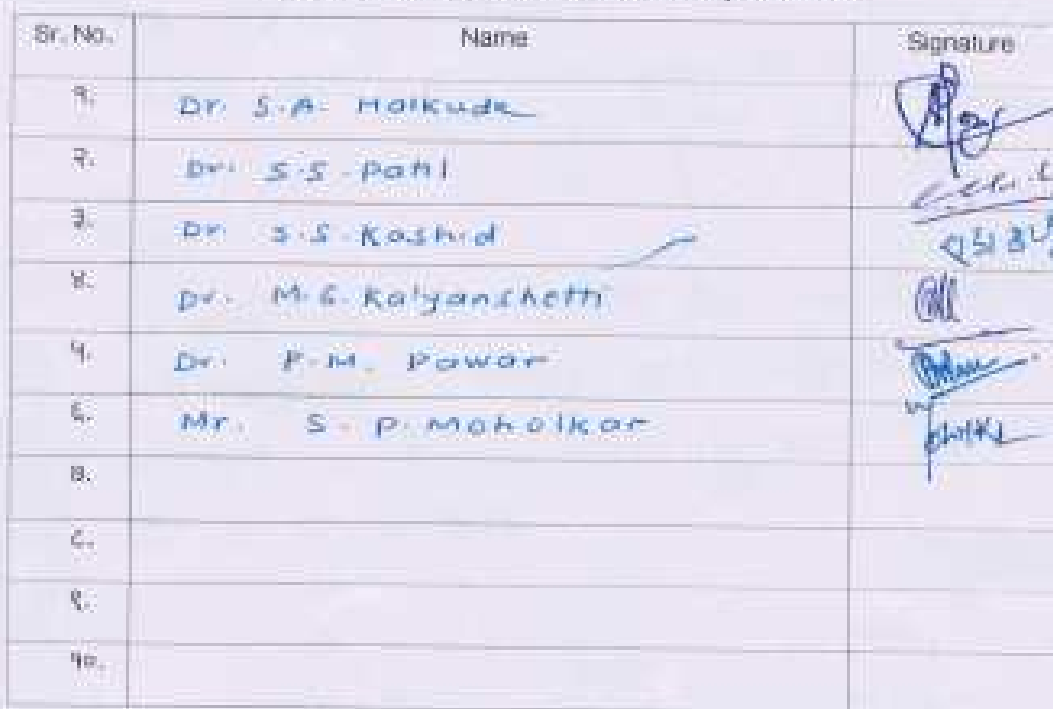 Sr. No. Name Signature
१. Dr. S.A. Halkude
२. Dr. S.S. Patil
३. Dr. S.S. Kashid
४. Dr. M.G. Kalyanshetti
५. Dr. P.M. Pawar
६. Mr. S. P. Moholkar
७.
८.
९.
१०.